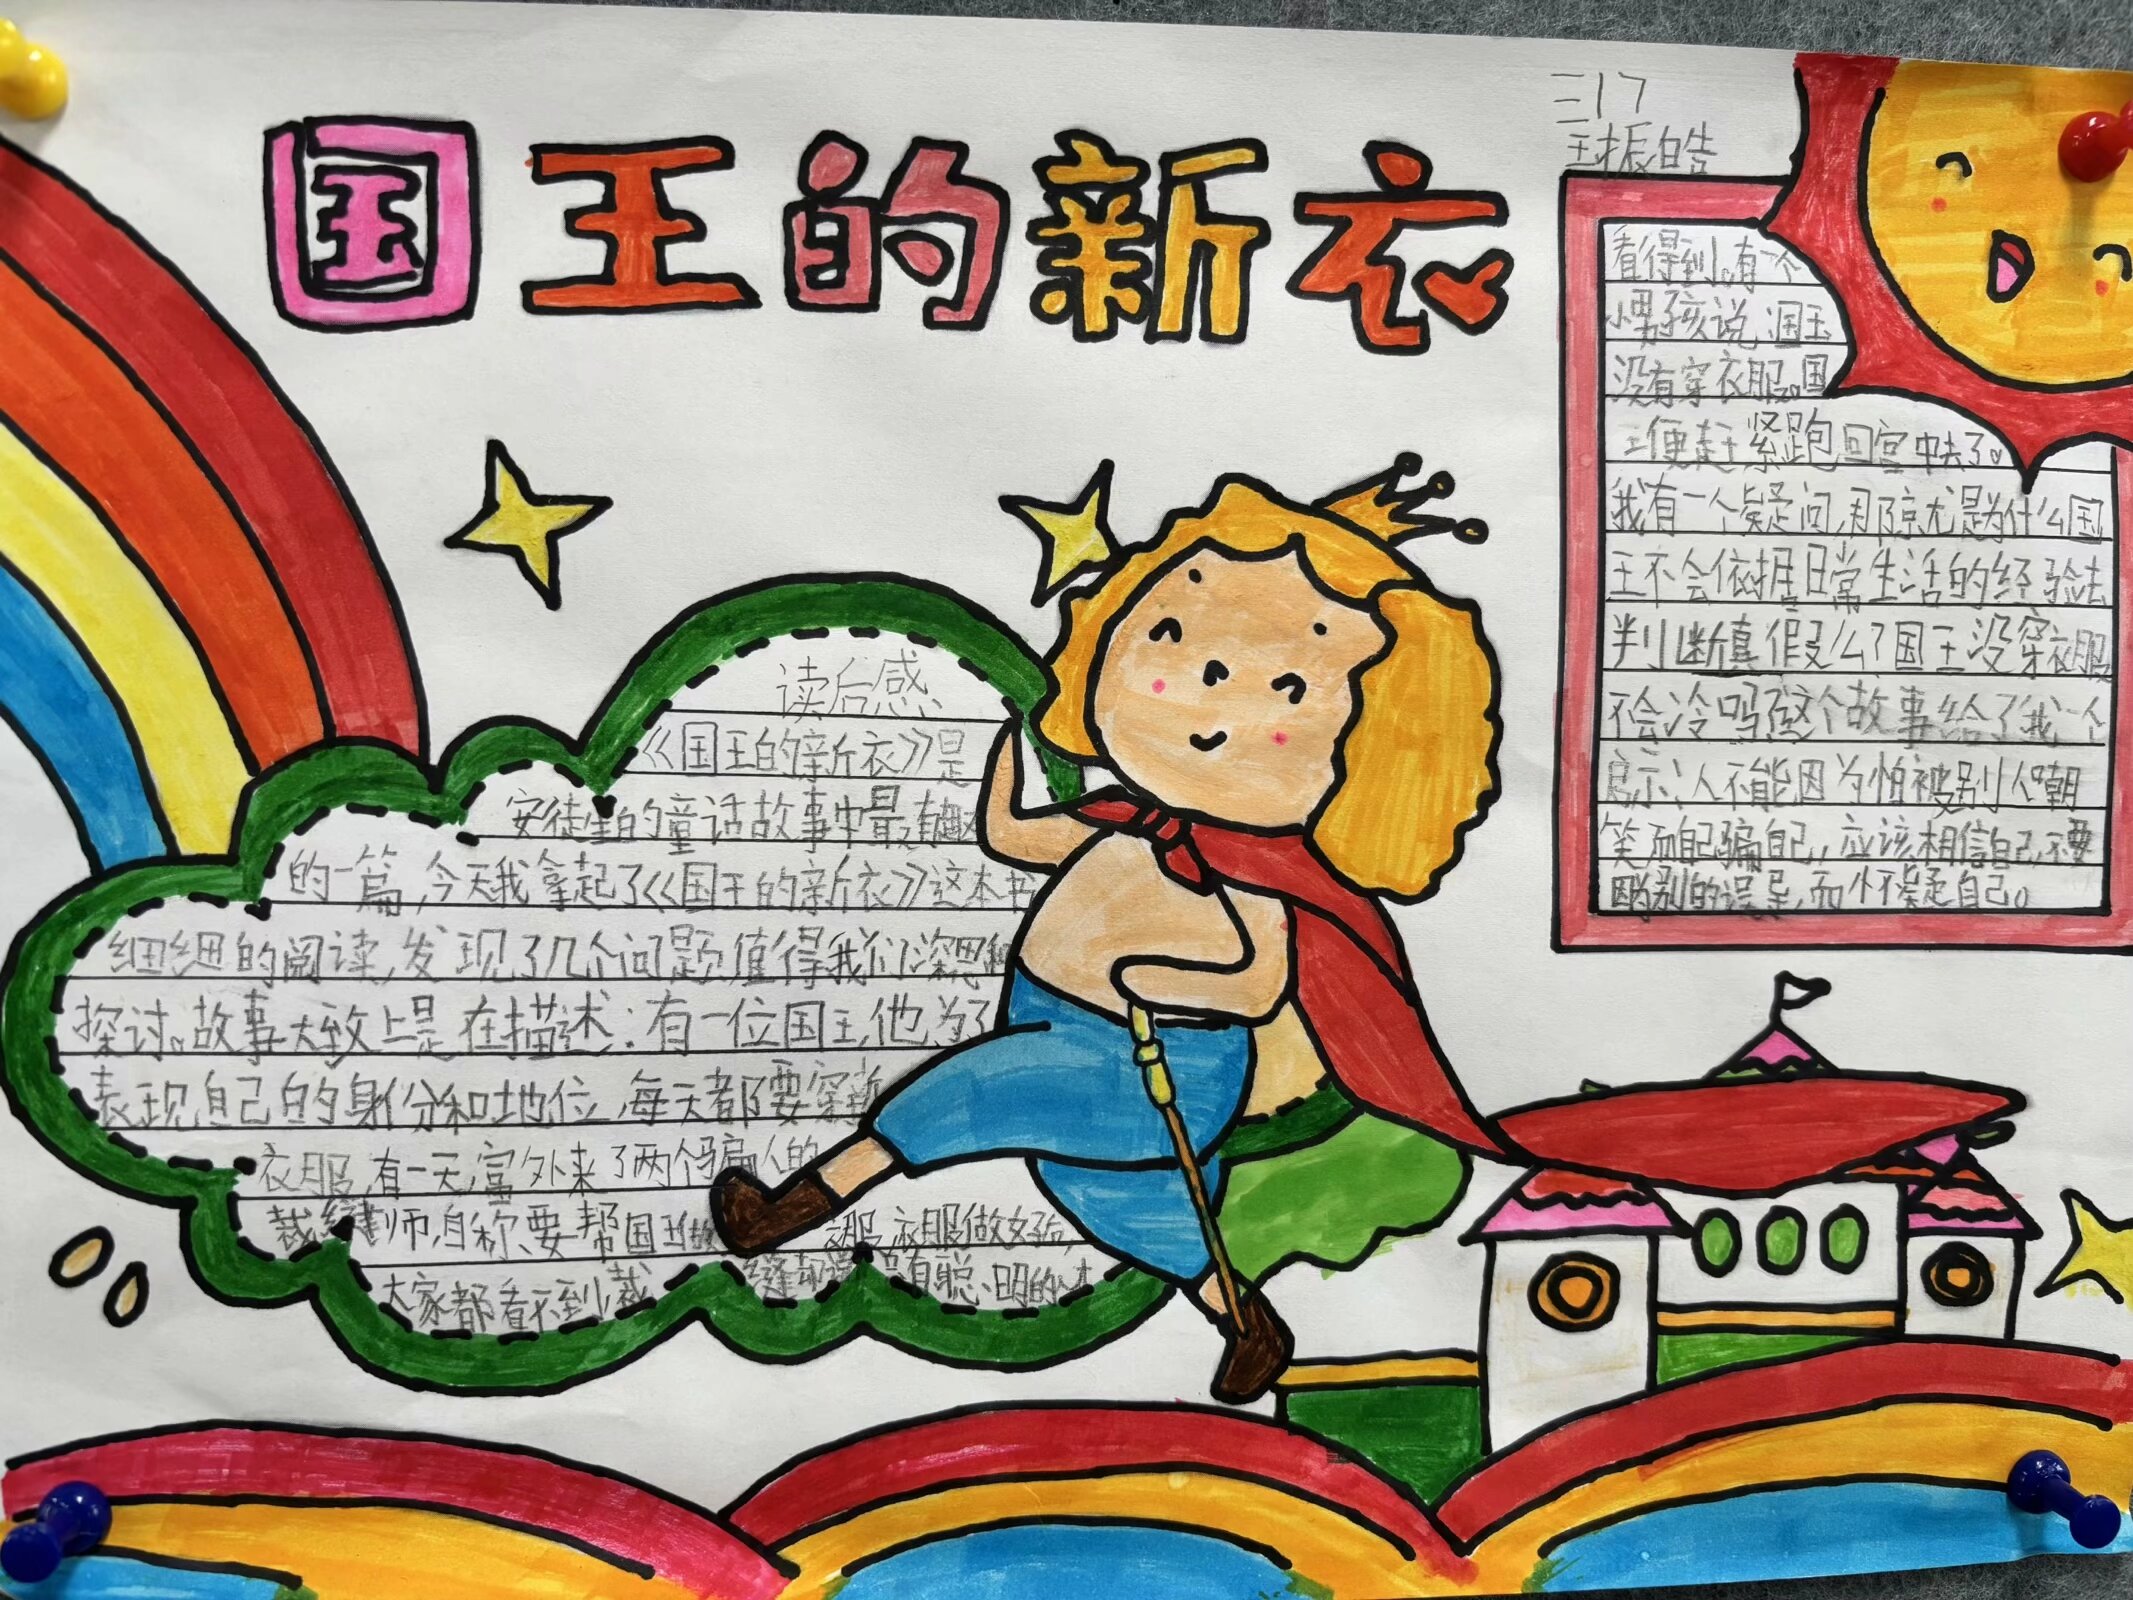 国王的新衣
三17
王振皓
读后感
《国王的新衣》是
安徒生的童话故事中最有趣
的一篇,今天我拿起了《国王的新衣》这本书
细细的阅读,发现了几个问题值得我们深思和
探讨。故事大致上是在描述:有一位国王,他为了
表现自己的身份和地位,每天都要穿新
衣服,有一天,宫外来了两个骗人的
裁缝师,自称要帮国王做衣服,衣服做好后,
大家都看不到,裁缝却说只有聪明的人才
看得到。有一个
小男孩说:国王
没有穿衣服。国
王便赶紧跑回宫中去了。
我有一个疑问,那就是为什么国
王不会依据日常生活的经验去
判断真假呢?国王没穿衣服
不会冷吗?这个故事给了我一个
启示:人不能因为怕被别人嘲
笑而自己骗自己,应该相信自己,不要
因为别的误导,而怀疑自己。